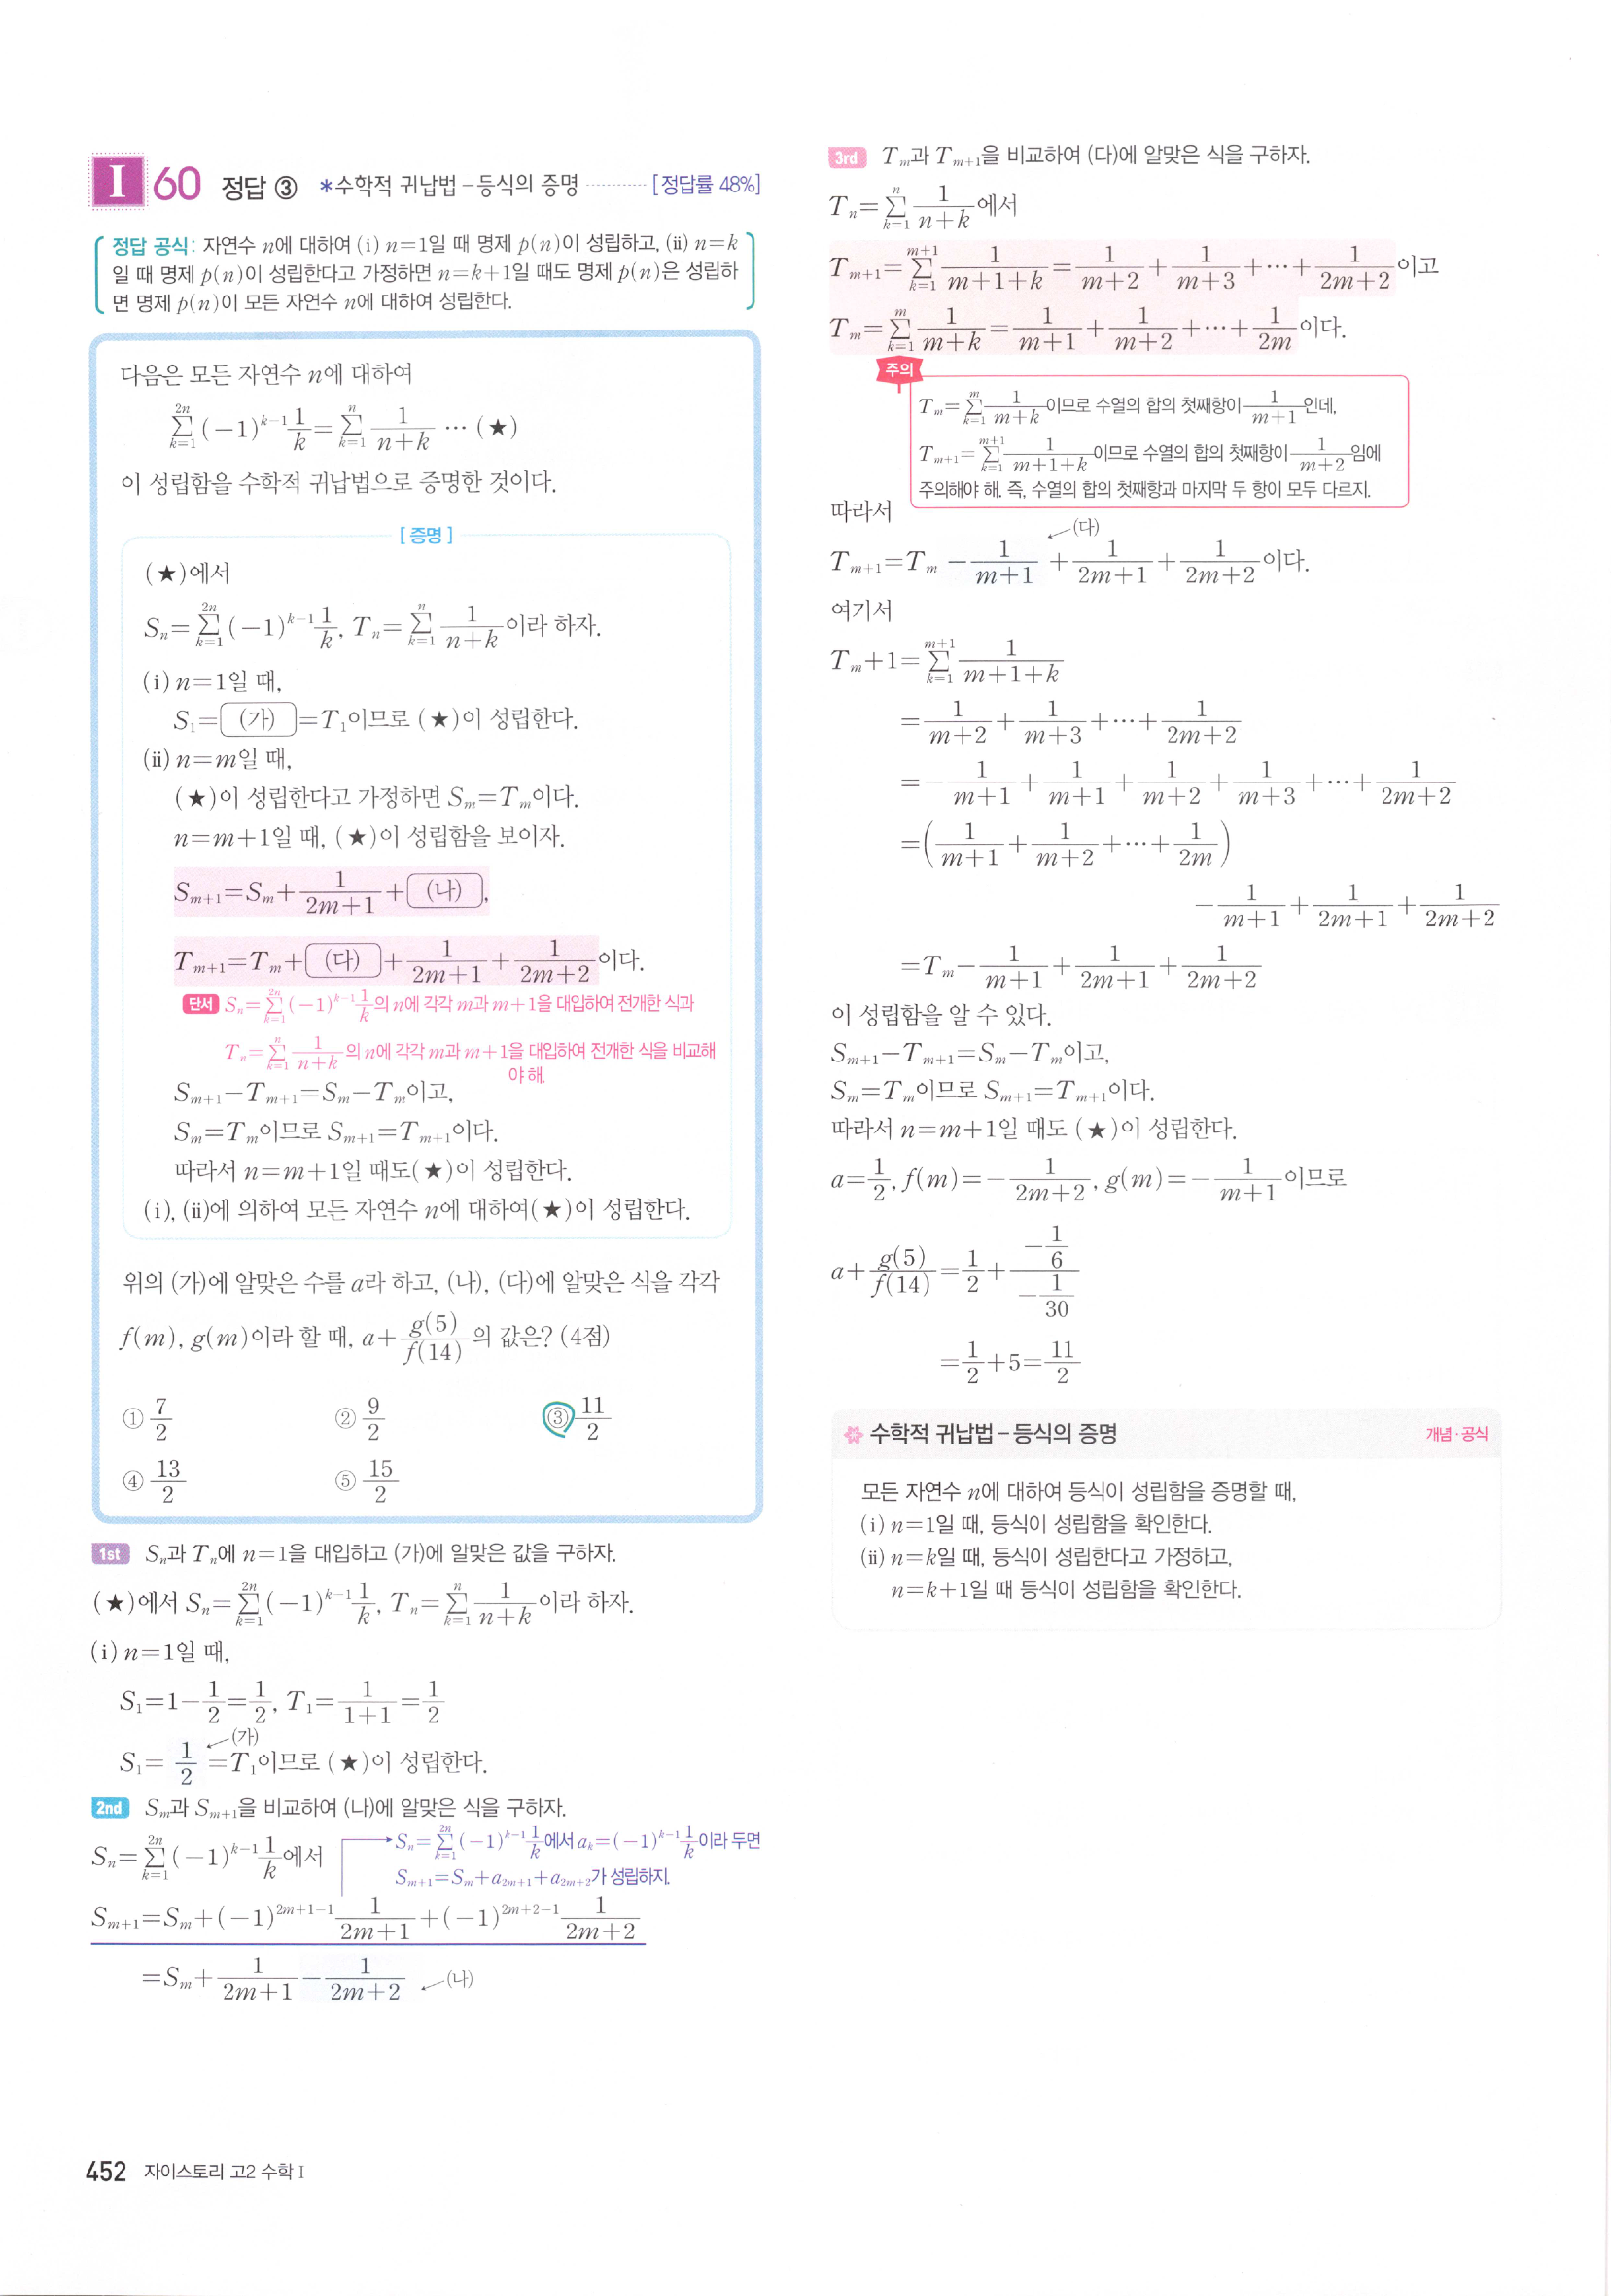 I 60 정답 ③ *수학적 귀납법-등식의 증명 ·········· [정답률 48%]
정답 공식: 자연수 n에 대하여 (i) n=1일 때 명제 p(n)이 성립하고, (ii) n=k
일 때 명제 p(n)이 성립한다고 가정하면 n=k+1일 때도 명제 p(n)은 성립하
면 명제 p(n)이 모든 자연수 n에 대하여 성립한다.
다음은 모든 자연수 n에 대하여
$\sum_{k=1}^{2n}(-1)^{k-1}\frac{1}{k}=\sum_{k=1}^{n}\frac{1}{n+k}$ ··· (★)
이 성립함을 수학적 귀납법으로 증명한 것이다.
[증명]
(★)에서
$S_n=\sum_{k=1}^{2n}(-1)^{k-1}\frac{1}{k}$, $T_n=\sum_{k=1}^{n}\frac{1}{n+k}$이라 하자.
(i) n=1일 때,
$S_1$= (가) =$T_1$이므로 (★)이 성립한다.
(ii) n=m일 때,
(★)이 성립한다고 가정하면 $S_m=T_m$이다.
n=m+1일 때, (★)이 성립함을 보이자.
$S_{m+1}=S_m+\frac{1}{2m+1}$+ (나) ,
$T_{m+1}=T_m$+ (다) +$\frac{1}{2m+1}+\frac{1}{2m+2}$이다.
단서 $S_n=\sum_{k=1}^{2n}(-1)^{k-1}\frac{1}{k}$의 n에 각각 m과 m+1을 대입하여 전개한 식과
$T_n=\sum_{k=1}^{n}\frac{1}{n+k}$의 n에 각각 m과 m+1을 대입하여 전개한 식을 비교해
야 해.
$S_{m+1}-T_{m+1}=S_m-T_m$이고,
$S_m=T_m$이므로 $S_{m+1}=T_{m+1}$이다.
따라서 n=m+1일 때도(★)이 성립한다.
(i), (ii)에 의하여 모든 자연수 n에 대하여(★)이 성립한다.
위의 (가)에 알맞은 수를 a라 하고, (나), (다)에 알맞은 식을 각각
f(m), g(m)이라 할 때, $a+\frac{g(5)}{f(14)}$의 값은? (4점)
① $\frac{7}{2}$ ② $\frac{9}{2}$ ③ $\frac{11}{2}$
④ $\frac{13}{2}$ ⑤ $\frac{15}{2}$
1st $S_n$과 $T_n$에 n=1을 대입하고 (가)에 알맞은 값을 구하자.
(★)에서 $S_n=\sum_{k=1}^{2n}(-1)^{k-1}\frac{1}{k}$, $T_n=\sum_{k=1}^{n}\frac{1}{n+k}$이라 하자.
(i) n=1일 때,
$S_1=1-\frac{1}{2}=\frac{1}{2}$, $T_1=\frac{1}{1+1}=\frac{1}{2}$
(가)
$S_1=\frac{1}{2}=T_1$이므로 (★)이 성립한다.
2nd $S_m$과 $S_{m+1}$을 비교하여 (나)에 알맞은 식을 구하자.
$S_n=\sum_{k=1}^{2n}(-1)^{k-1}\frac{1}{k}$에서
$S_n=\sum_{k=1}^{2n}(-1)^{k-1}\frac{1}{k}$에서 $a_k=(-1)^{k-1}\frac{1}{k}$이라 두면
$S_{m+1}=S_m+a_{2m+1}+a_{2m+2}$가 성립하지.
$S_{m+1}=S_m+(-1)^{2m+1-1}\frac{1}{2m+1}+(-1)^{2m+2-1}\frac{1}{2m+2}$
$=S_m+\frac{1}{2m+1}-\frac{1}{2m+2}$ (나)
3rd $T_m$과 $T_{m+1}$을 비교하여 (다)에 알맞은 식을 구하자.
$T_n=\sum_{k=1}^{n}\frac{1}{n+k}$에서
$T_{m+1}=\sum_{k=1}^{m+1}\frac{1}{m+1+k}=\frac{1}{m+2}+\frac{1}{m+3}+\cdots+\frac{1}{2m+2}$이고
$T_m=\sum_{k=1}^{m}\frac{1}{m+k}=\frac{1}{m+1}+\frac{1}{m+2}+\cdots+\frac{1}{2m}$이다.
주의
$T_m=\sum_{k=1}^{m}\frac{1}{m+k}$이므로 수열의 합의 첫째항이 $\frac{1}{m+1}$인데,
$T_{m+1}=\sum_{k=1}^{m+1}\frac{1}{m+1+k}$이므로 수열의 합의 첫째항이 $\frac{1}{m+2}$임에
주의해야 해. 즉, 수열의 합의 첫째항과 마지막 두 항이 모두 다르지.
따라서
(다)
$T_{m+1}=T_m-\frac{1}{m+1}+\frac{1}{2m+1}+\frac{1}{2m+2}$이다.
여기서
$T_m+1=\sum_{k=1}^{m+1}\frac{1}{m+1+k}$
$=\frac{1}{m+2}+\frac{1}{m+3}+\cdots+\frac{1}{2m+2}$
$=-\frac{1}{m+1}+\frac{1}{m+1}+\frac{1}{m+2}+\frac{1}{m+3}+\cdots+\frac{1}{2m+2}$
$=\left(\frac{1}{m+1}+\frac{1}{m+2}+\cdots+\frac{1}{2m}\right)$
$-\frac{1}{m+1}+\frac{1}{2m+1}+\frac{1}{2m+2}$
$=T_m-\frac{1}{m+1}+\frac{1}{2m+1}+\frac{1}{2m+2}$
이 성립함을 알 수 있다.
$S_{m+1}-T_{m+1}=S_m-T_m$이고,
$S_m=T_m$이므로 $S_{m+1}=T_{m+1}$이다.
따라서 n=m+1일 때도 (★)이 성립한다.
$a=\frac{1}{2}$, $f(m)=-\frac{1}{2m+2}$, $g(m)=-\frac{1}{m+1}$이므로
$a+\frac{g(5)}{f(14)}=\frac{1}{2}+\frac{-\frac{1}{6}}{-\frac{1}{30}}$
$=\frac{1}{2}+5=\frac{11}{2}$
수학적 귀납법-등식의 증명 개념·공식
모든 자연수 n에 대하여 등식이 성립함을 증명할 때,
(i) n=1일 때, 등식이 성립함을 확인한다.
(ii) n=k일 때, 등식이 성립한다고 가정하고,
n=k+1일 때 등식이 성립함을 확인한다.
452 자이스토리 고2 수학 I